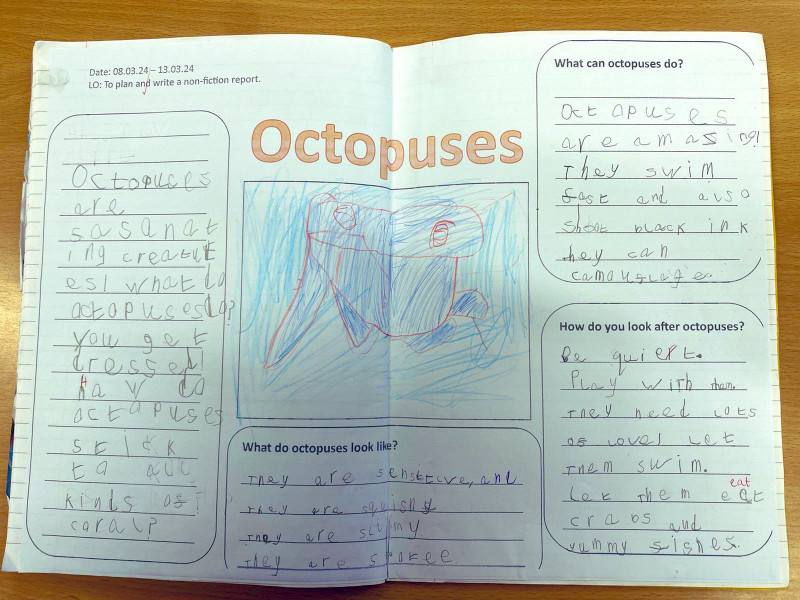 Date: 08.03.24 – 13.03.24
LO: To plan and write a non-fiction report.
Octopuses
Octopuces
are
sasanat
ing creatur
es! what do
octopuses do?
you get
dressed!
How do
octopuses
stick
to all
kinds os
coral?
What do octopuses look like?
They are sensetive, and
They are squishy
They are slimy
They are spokee
What can octopuses do?
Octopuses
are amasing!
They swim
fast and also
shoot black ink
they can
camouslage.
How do you look after octopuses?
Be quiet.
Play with them.
They need lots
os love! Let
them swim.
eat
Let them eat
crabs and
yummy sishes.